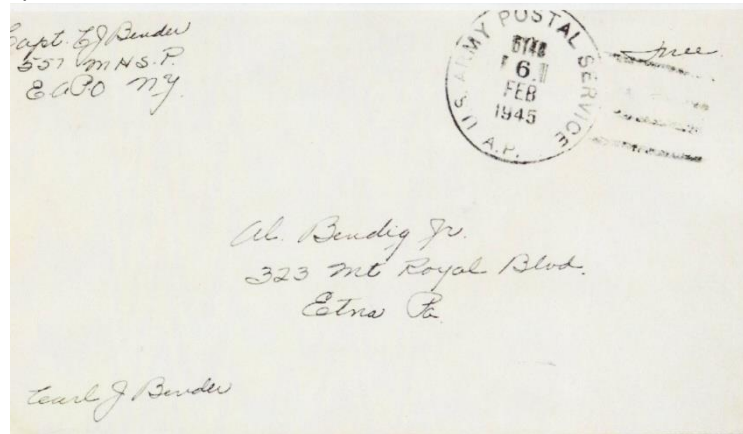 Capt. E J Bender
557 M H S. P.
E APO NY.
U.S. ARMY POSTAL SERVICE
6
FEB
1945
A.P.
free
Al. Bendig Jr.
323 Mt Royal Blvd.
Etna Pa.
Earl J Bender